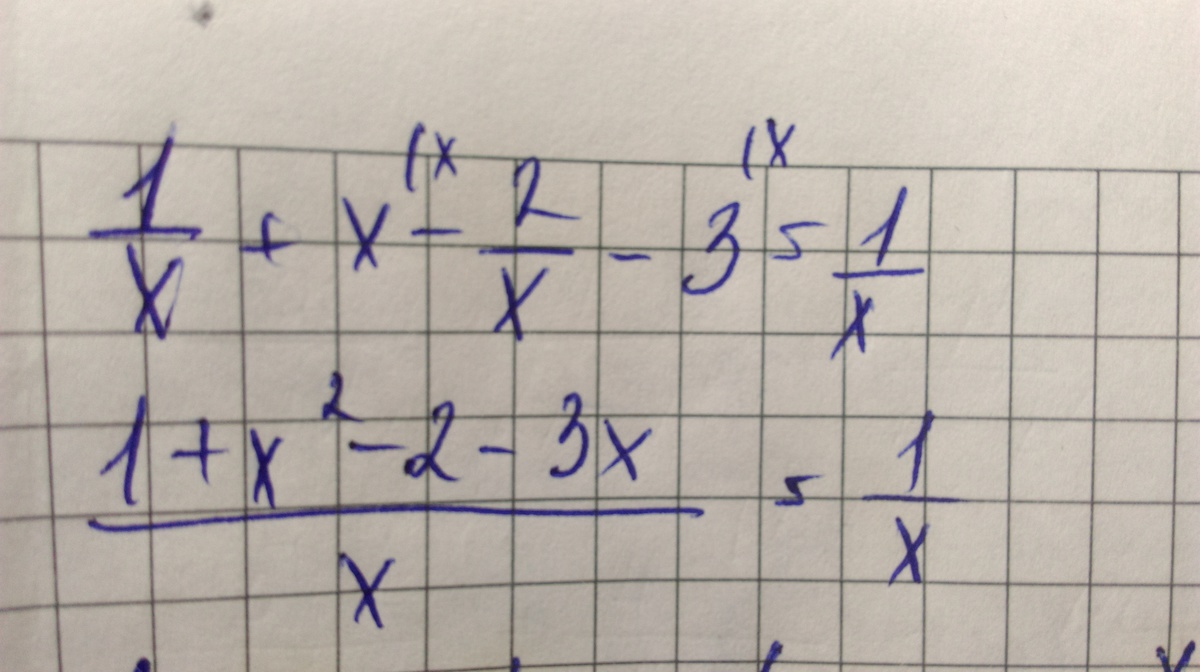 1/x + x⁽ˣ - 2/x - 3⁽ˣ = 1/x
(1 + x² - 2 - 3x)/x = 1/x